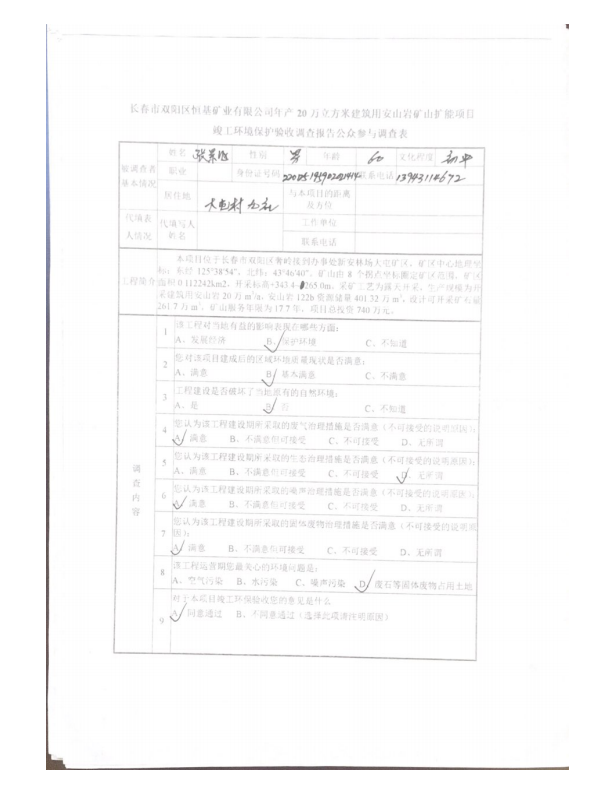 长春市双阳区恒基矿业有限公司年产 20 万立方米建筑用安山岩矿山扩能项目
竣工环境保护验收调查报告公众参与调查表
被调查者基本情况
姓名 性别 男 年龄 60 文化程度 初中
职业 身份证号码 联系电话 13943114672
居住地 与本项目的距离及方位
代填表人情况
代填写人姓名 工作单位
联系电话
工程简介
本项目位于长春市双阳区奢岭接到办事处新安林场大屯矿区，矿区中心地理坐
标：东经 125°38′54″，北纬：43°46′40″，矿山由 8 个拐点坐标圈定矿区范围，矿区
面积 0.112242km2，开采标高+343.4- 265.0m，采矿工艺为露天开采，生产规模为开
采建筑用安山岩 20 万 m³/a，安山岩 122b 资源储量 401.32 万 m³，设计可开采矿石量
261.7 万 m³，矿山服务年限为 17.7 年，项目总投资 740 万元。
调查内容
1 该工程对当地有益的影响表现在哪些方面：
A、发展经济 B、保护环境 C、不知道
2 您对该项目建成后的区域环境质量现状是否满意：
A、满意 B、基本满意 C、不满意
3 工程建设是否破坏了当地原有的自然环境：
A、是 B、否 C、不知道
4 您认为该工程建设期所采取的废气治理措施是否满意（不可接受的说明原因）：
A、满意 B、不满意但可接受 C、不可接受 D、无所谓
5 您认为该工程建设期所采取的生态治理措施是否满意（不可接受的说明原因）：
A、满意 B、不满意但可接受 C、不可接受 D、无所谓
6 您认为该工程建设期所采取的噪声治理措施是否满意（不可接受的说明原因）：
A、满意 B、不满意但可接受 C、不可接受 D、无所谓
7 您认为该工程建设期所采取的固体废物治理措施是否满意（不可接受的说明原
因）：
A、满意 B、不满意但可接受 C、不可接受 D、无所谓
8 该工程运营期您最关心的环境问题是：
A、空气污染 B、水污染 C、噪声污染 D、废石等固体废物占用土地
9 对于本项目竣工环保验收您的意见是什么
A、同意通过 B、不同意通过（选择此项请注明原因）